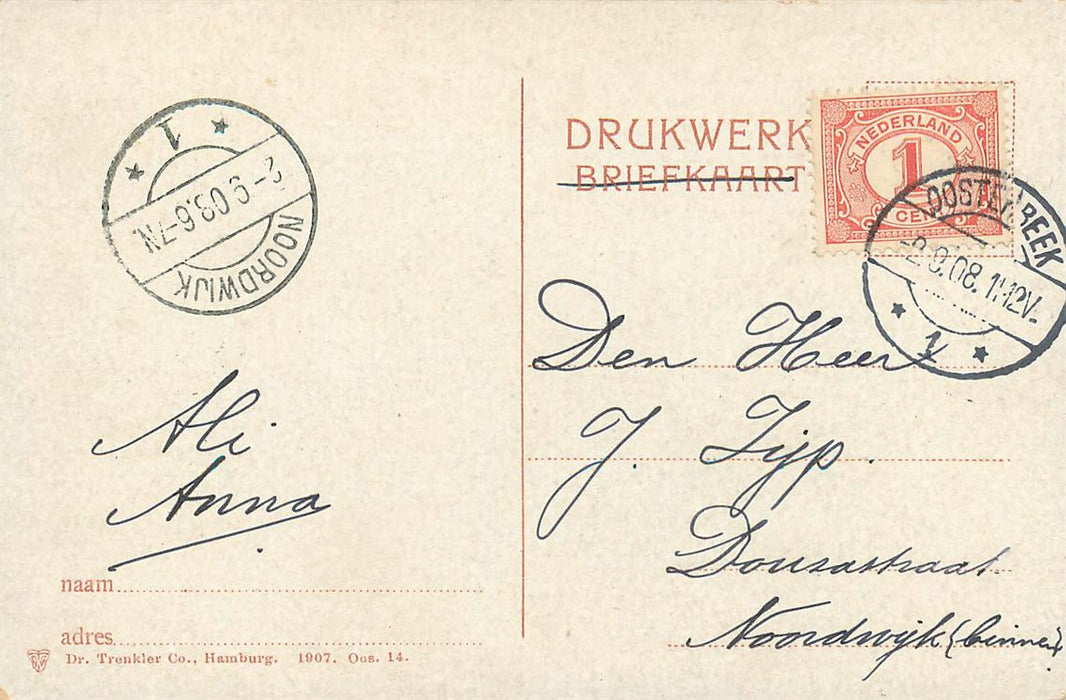 1
2-9.08.6-7N
NOORDWIJK
Ali
Anna
naam
adres
Dr. Trenkler Co., Hamburg. 1907. Oos. 14.
DRUKWERK
BRIEFKAART
NEDERLAND
1
CENT
OOSTERBEEK
-2.9.08.11-12V-
1
Den Heer
J. Zijp.
Dousastraat
Noordwijk (binnen)